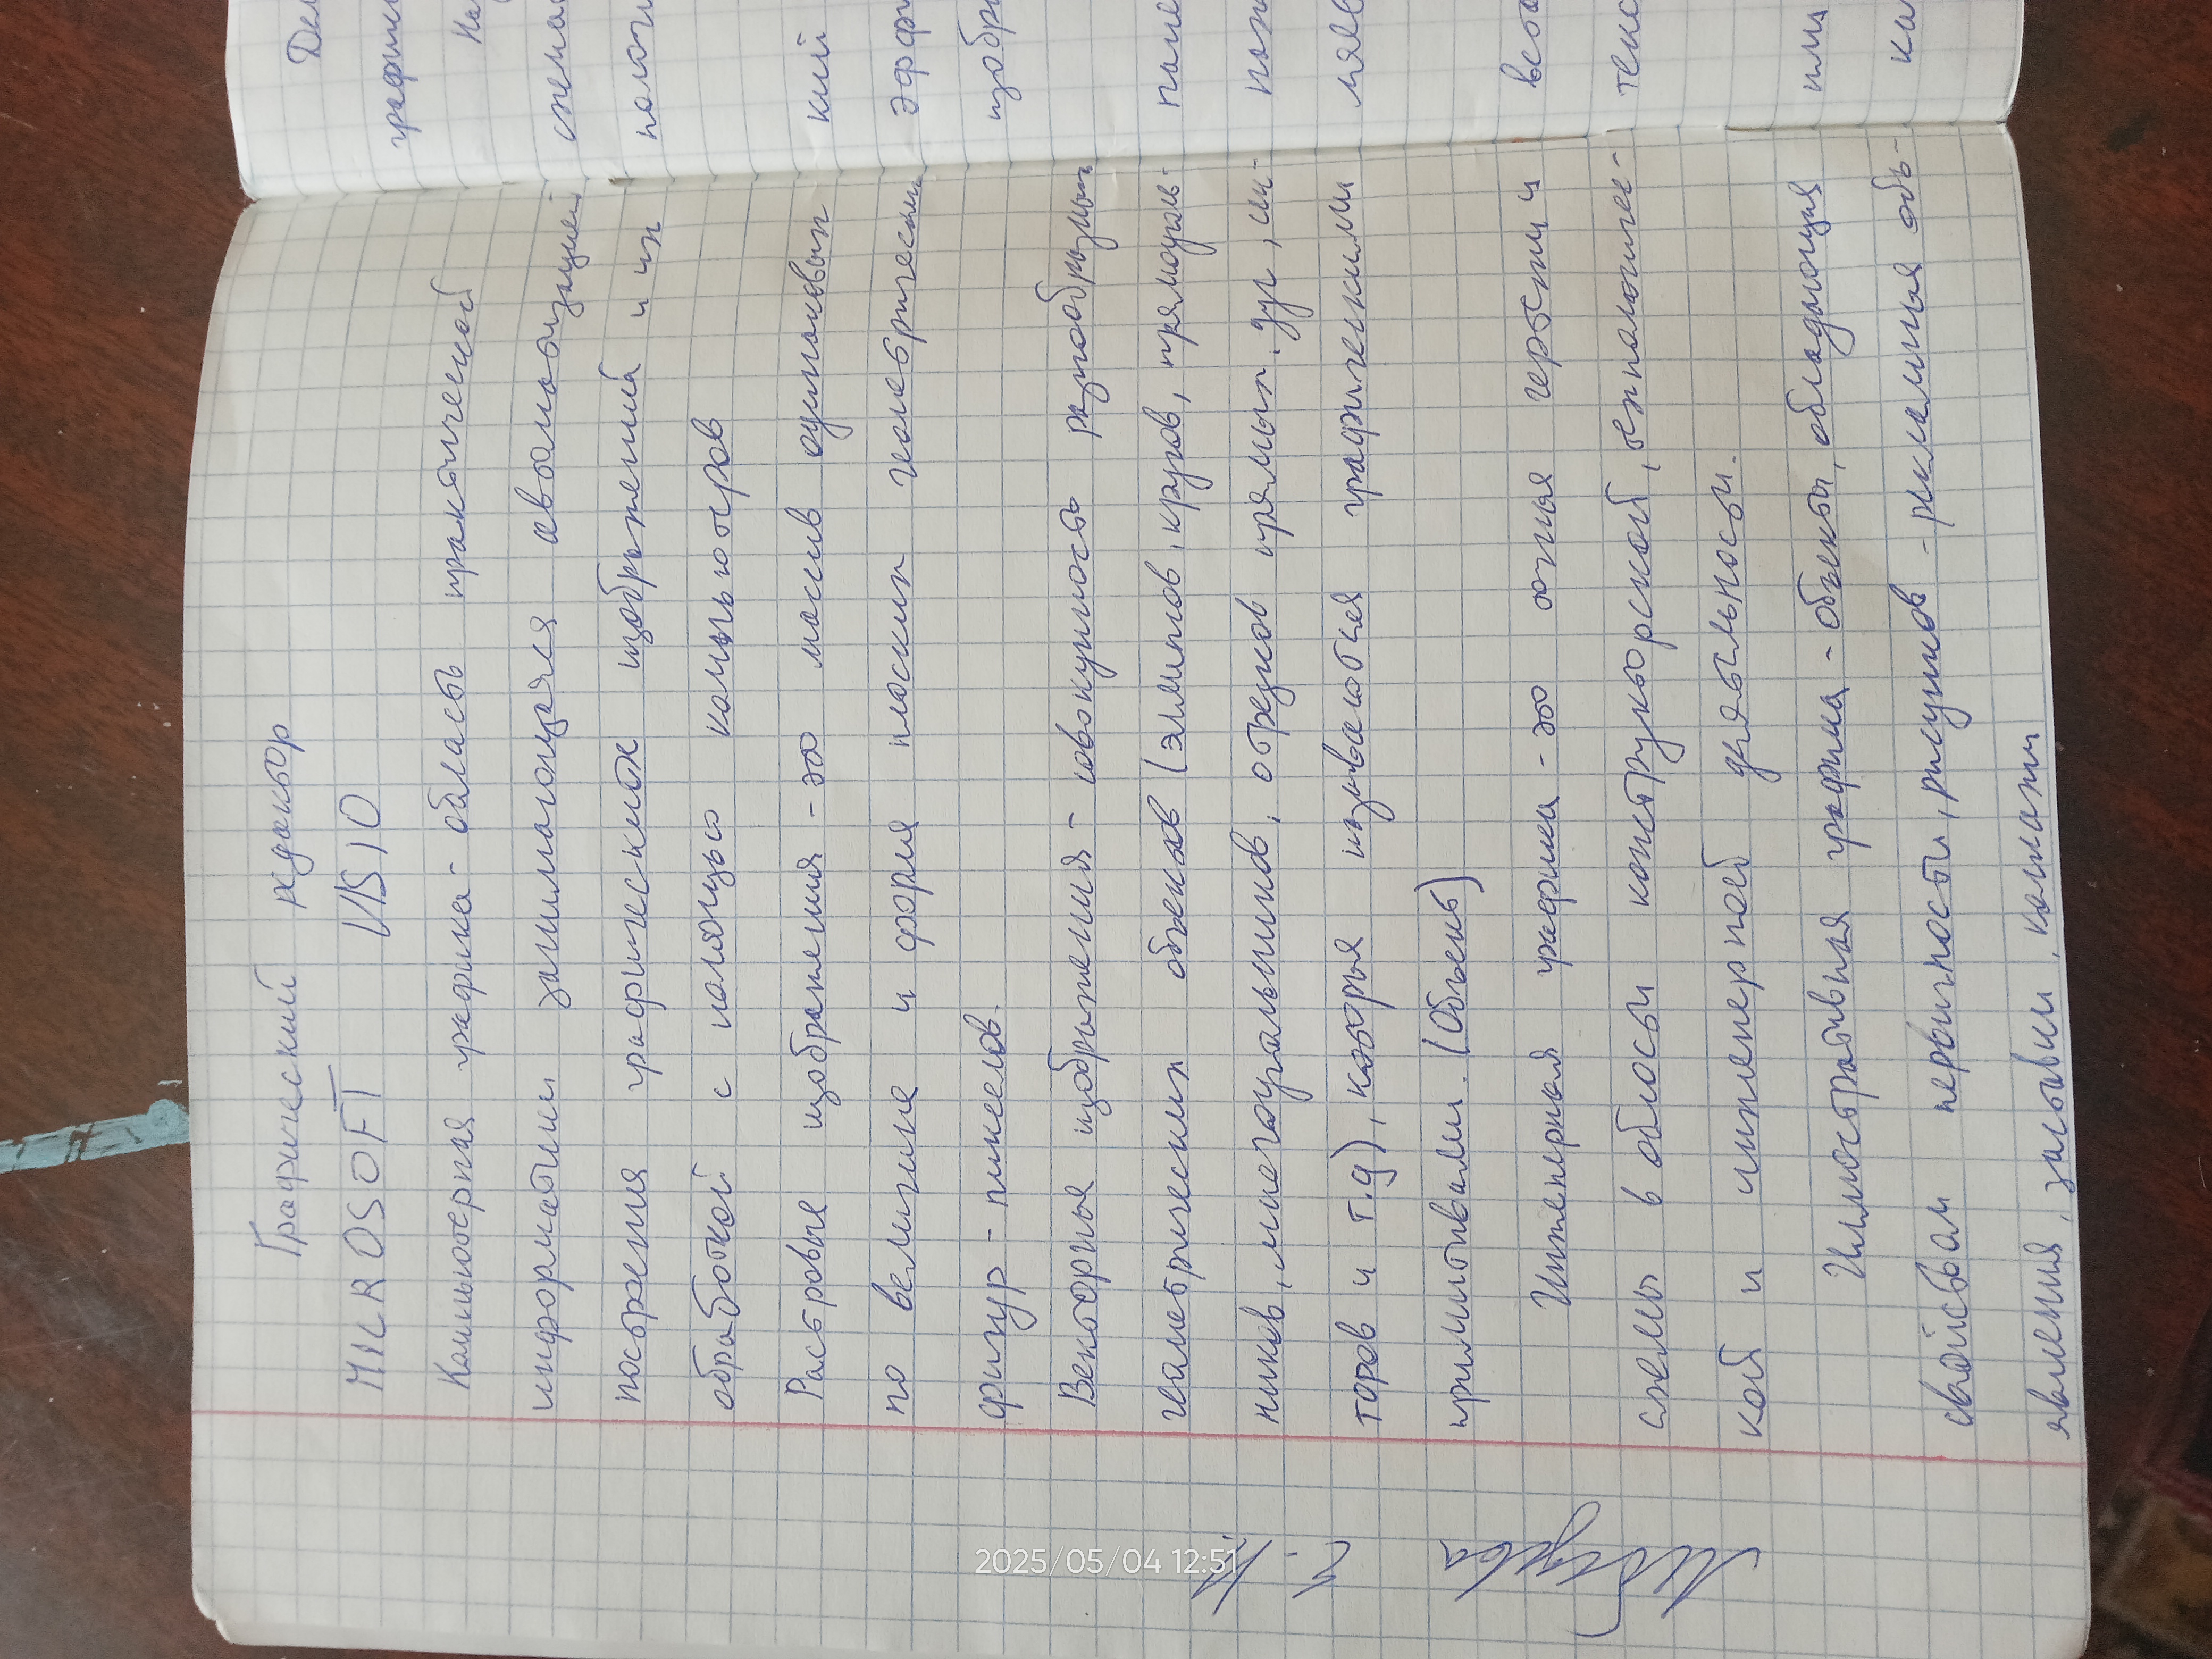 Графический редактор
MICROSOFT VISIO
Компьютерная графика - область практической
информатики занимающаяся автоматизацией
построения графических изображений и их
обработкой с помощью компьютеров
Растровые изображения - это массив одинаковых
по величине и форме плоских геометрических
фигур - пикселов.
Векторные изображения - совокупность разнообразных
геометрических объектов (эллипсов, кругов, прямоуголь-
ников, многоугольников, отрезков прямых, дуг, ...
торов и т.д), которые называются графическими
примитивами. (Объекты)
Инженерная графика - это ... чертежи и
схемы в области конструкторской, технологичес-
кой и инженерной деятельности.
Иллюстративная графика - объекты, обладающая
свойствам первичности, рисунков - рекламные объ-
явления, заставки, коллажи
Дел
графики
На
схемас
полож
кий
эфф
изобр
поле
пож
ляе
вето
текс
или
ка
2025/05/04 12:51